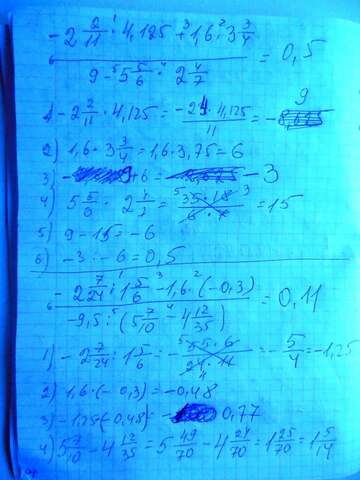 -2 2/11 · 4,125 + 1,6 · 3 3/4
9 - 5 5/6 · 2 4/7 = 0,5
1) -2 2/11 · 4,125 = -24 · 4,125 / 11 = -9
2) 1,6 · 3 3/4 = 1,6 · 3,75 = 6
3) -9+6 = -3
4) 5 5/6 · 2 4/7 = 35·18 / 6·7 = 15
5) 9 - 15 = -6
6) -3 : -6 = 0,5
-2 7/24 : 1 5/6 - 1,6 · (-0,3)
-9,5 : (5 7/10 - 4 12/35) = 0,11
1) -2 7/24 : 1 5/6 = -55·6 / 24·11 = -5/4 = -1,25
2) 1,6 · (-0,3) = -0,48
3) -1,25-(-0,48) = -0,77
4) 5 7/10 - 4 12/35 = 5 49/70 - 4 24/70 = 1 25/70 = 1 5/14